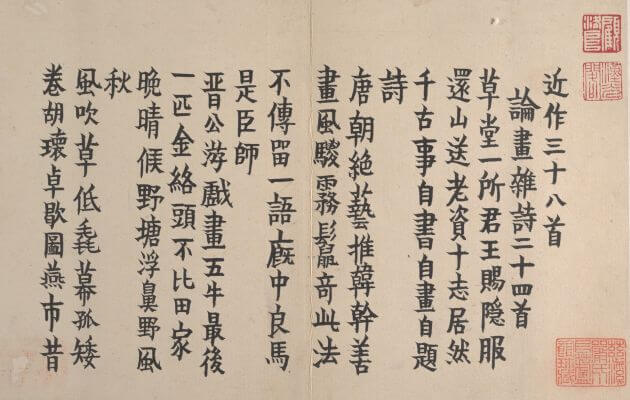 近作三十八首
論畫雜詩二十四首
草堂一所君王賜隐服
還山送老資十志居然
千古事自書自畫自題
詩
唐朝絶藝推韓幹善
畫風騣霧鬛竒此法
不傳留一語廄中良馬
是臣師
晋公游戲畫五牛最後
一匹金絡頭不比田家
晚晴候野塘浮鼻野風
秋
風吹草低毳幕孤矮
卷胡瓌卓歇圖燕市昔